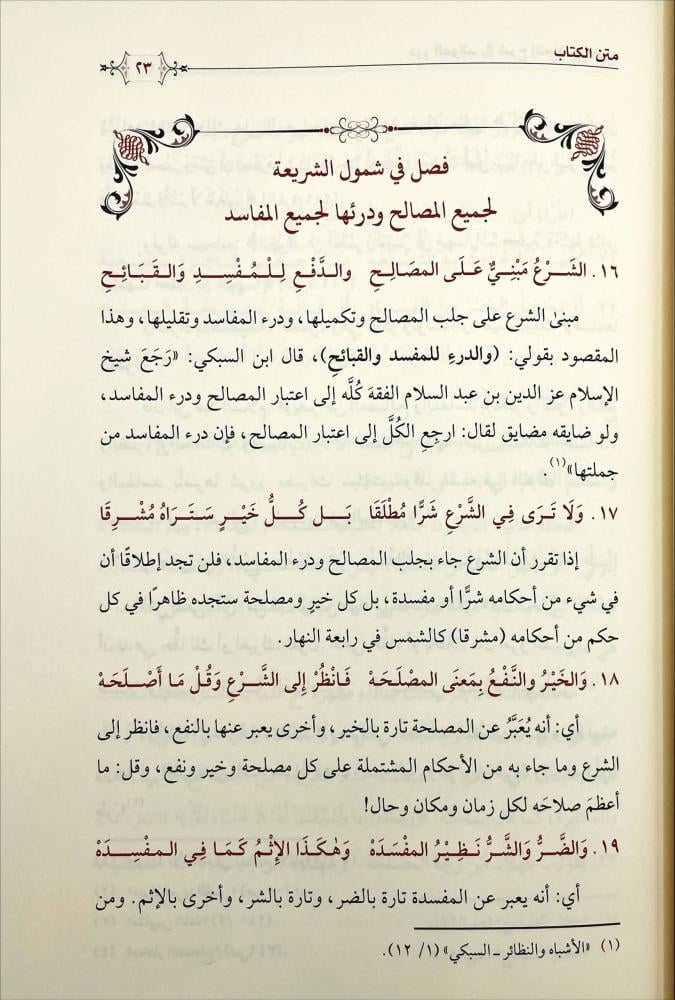 متن الكتاب
٢٣
فصل في شمول الشريعة
لجميع المصالح ودرئها لجميع المفاسد
١٦. الشَّرْعُ مَبْنِيٌّ عَلَى المصَالِحِ والدَّفْعِ لِلْمُفْسِدِ وَالقَبَائِحِ
مبنىٰ الشرع على جلب المصالح وتكميلها، ودرء المفاسد وتقليلها، وهذا
المقصود بقولي: (والدرءِ للمفسد والقبائحِ)، قال ابن السبكي: «رَجَعَ شيخ
الإسلام عز الدين بن عبد السلام الفقهَ كُلَّه إلى اعتبار المصالح ودرء المفاسد،
ولو ضايقه مضايق لقال: ارجِعِ الكُلَّ إلى اعتبار المصالح، فإن درء المفاسد من
جملتها»(١).
١٧. وَلَا تَرَى فِي الشَّرْعِ شَرًّا مُطْلَقَا بَلْ كُلُّ خَيْرٍ سَتَرَاهُ مُشْرِقَا
إذا تقرر أن الشرع جاء بجلب المصالح ودرء المفاسد، فلن تجد إطلاقًا أن
في شيء من أحكامه شرًّا أو مفسدة، بل كل خيرٍ ومصلحة ستجده ظاهرًا في كل
حكم من أحكامه (مشرقا) كالشمس في رابعة النهار.
١٨. وَالخَيْرُ والنَّفْعُ بِمَعنَى المصْلَحَهْ فَانْظُرْ إِلى الشَّرْعِ وَقُلْ مَا أَصْلَحَهْ
أي: أنه يُعَبَّرُ عن المصلحة تارة بالخير، وأخرى يعبر عنها بالنفع، فانظر إلى
الشرع وما جاء به من الأحكام المشتملة على كل مصلحة وخير ونفع، وقل: ما
أعظمَ صلاحَه لكل زمان ومكان وحال!
١٩. وَالضَّرُّ والشَّرُّ نَظِيْرُ المفسَدَهْ وَهٰكَذَا الإِثْمُ كَمَا فِي المفْسِدَهْ
أي: أنه يعبر عن المفسدة تارة بالضر، وتارة بالشر، وأخرى بالإثم. ومن
(١) «الأشباه والنظائر ـ السبكي» (١/ ١٢).